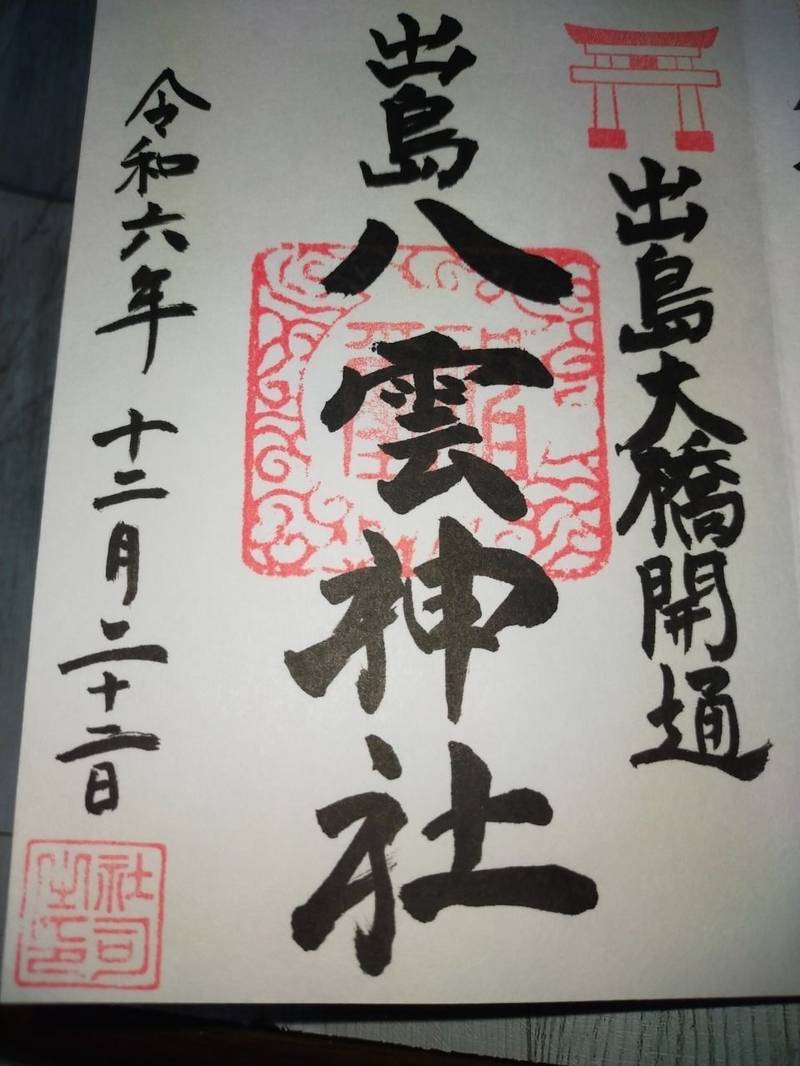 出島大橋開通
出島八雲神社
令和六年 十二月二十二日
社司
之印